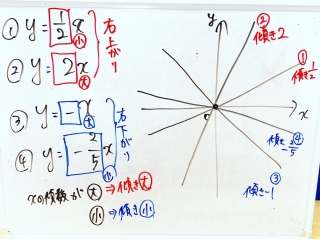 ① y = 1/2 x 小
② y = 2x 大
右上がり
③ y = -x 大
④ y = -2/5 x 小
右下がり
xの係数が 大 ⇒ 傾き大
小 ⇒ 傾き小
y
② 傾き2
① 傾き1/2
x
o
④ 傾き-2/5
③ 傾き-1